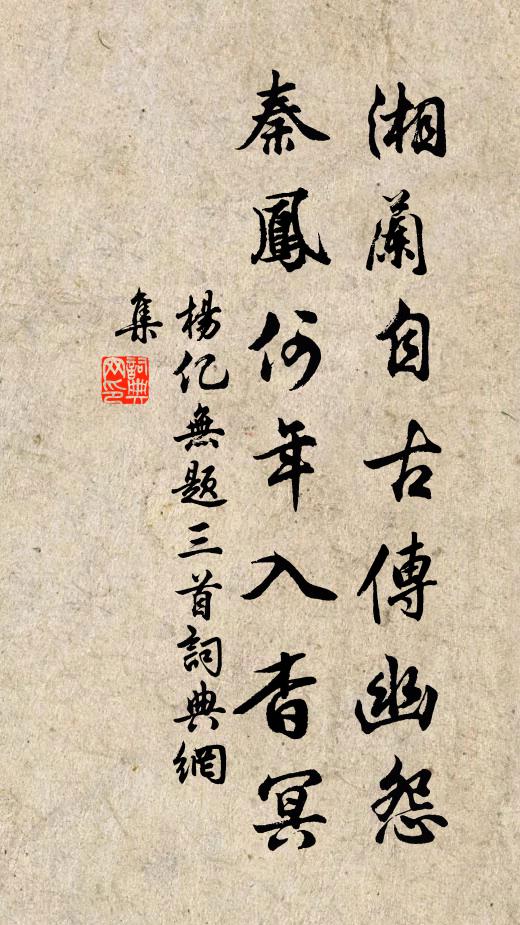 湘蘭自古傳幽怨
秦鳳何年入杳冥
楊亿無题三首詞典網
集
詞典网印